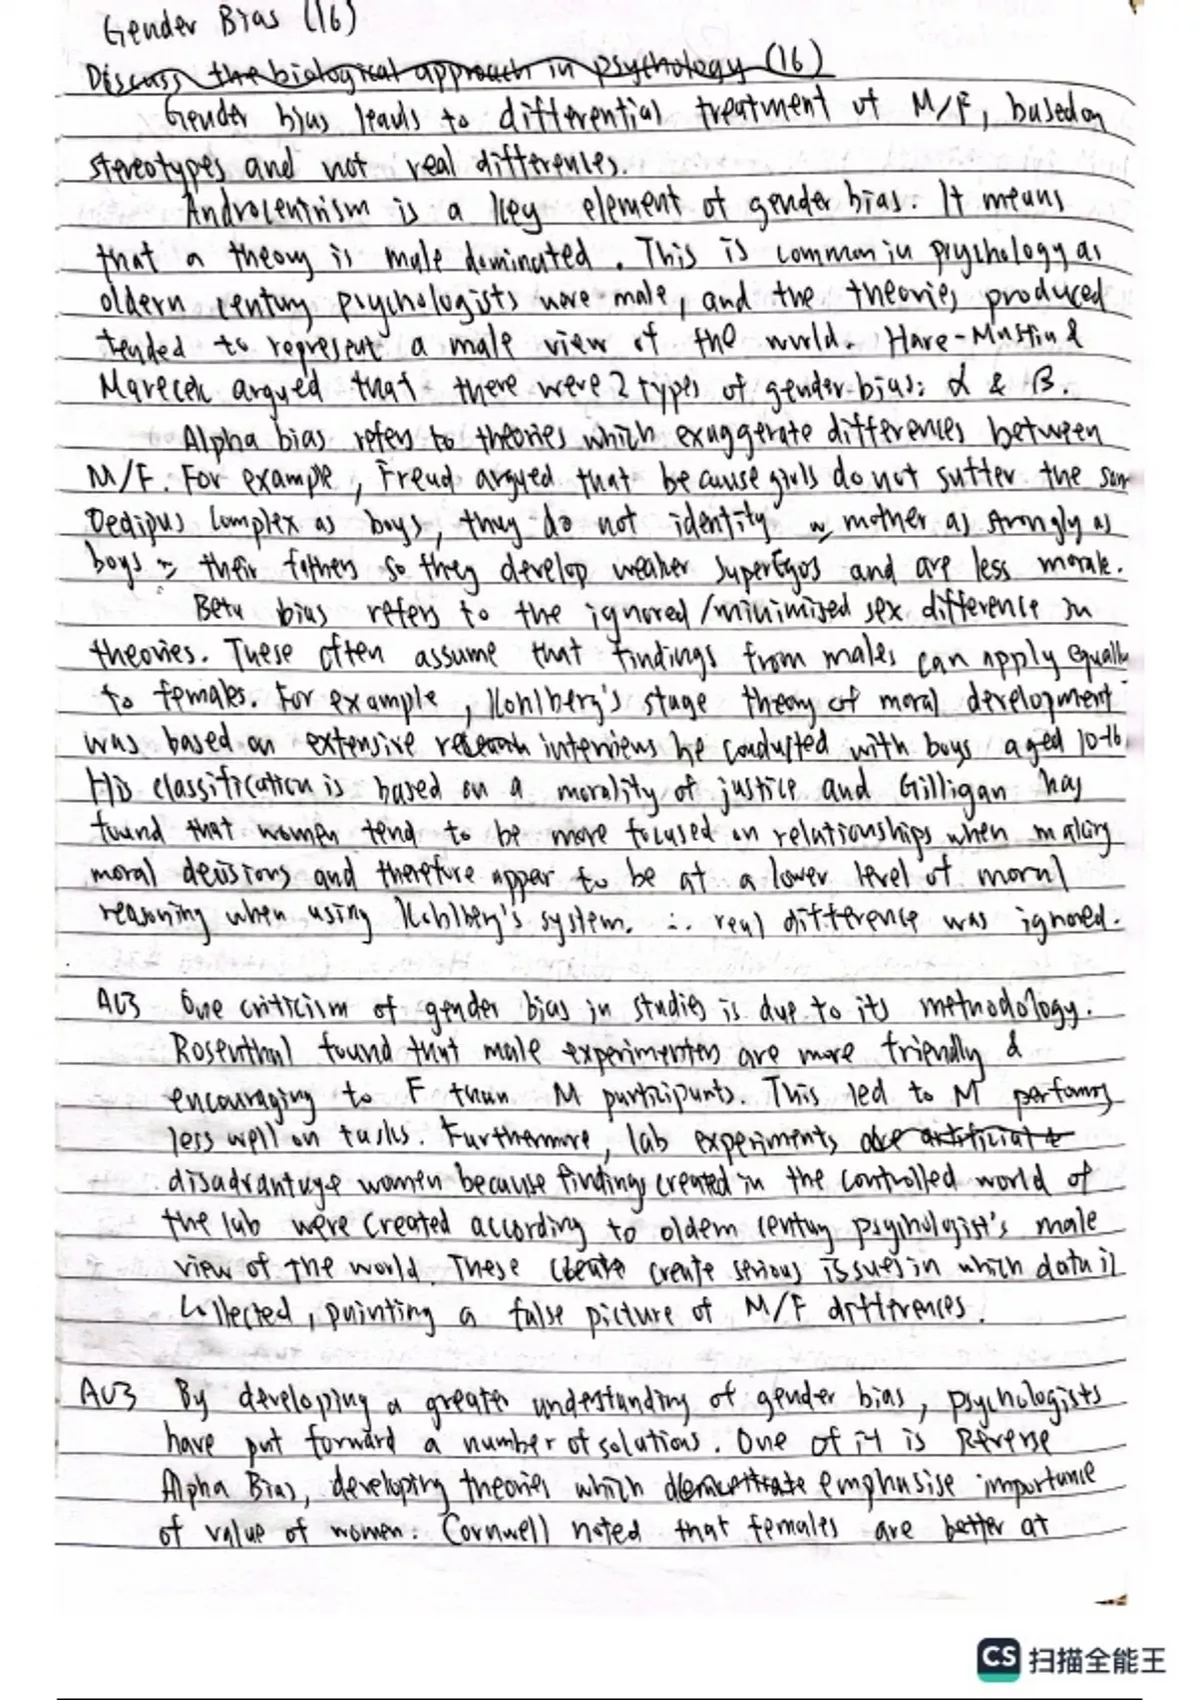 Gender Bias (16)
Discuss the biological approach in psychology (16)
Gender bias leads to differential treatment of M/F, based on
stereotypes and not real differences.
Androcentrism is a key element of gender bias. It means
that a theory is male dominated. This is common in psychology as
oldern century psychologists were male, and the theories produced
tended to represent a male view of the world. Hare-Mustin &
Marecek argued that there were 2 types of gender bias: α & β.
Alpha bias refers to theories which exaggerate differences between
M/F. For example, Freud argued that because girls do not suffer the same
Oedipus Complex as boys, they do not identify w mother as strongly as
boys their fathers so they develop weaker SuperEgos and are less morale.
Beta bias refers to the ignored/minimised sex difference in
theories. These often assume that findings from males can apply equally
to females. For example, Kohlberg's stage theory of moral development
was based on extensive research interviews he conducted with boys aged 10-16.
His classification is based on a morality of justice and Gilligan has
found that women tend to be more focused on relationships when making
moral decisions and therefore appear to be at a lower level of moral
reasoning when using Kohlberg's system. ∴ real difference was ignored.
AO3 One criticism of gender bias in studies is due to its methodology.
Rosenthal found that male experimenters are more friendly &
encouraging to F than M participants. This led to M performs
less well on tasks. Furthermore, lab experiments are artificial &
disadvantage women because findings created in the controlled world of
the lab were created according to oldern century psychologist's male
view of the world. These create create serious issues in which data is
collected, painting a false picture of M/F differences.
AO3 By developing a greater understanding of gender bias, psychologists
have put forward a number of solutions. One of it is Reverse
Alpha Bias, developing theories which demonstrate emphasise importance
of value of women. Cornwell noted that females are better at
CS 扫描全能王